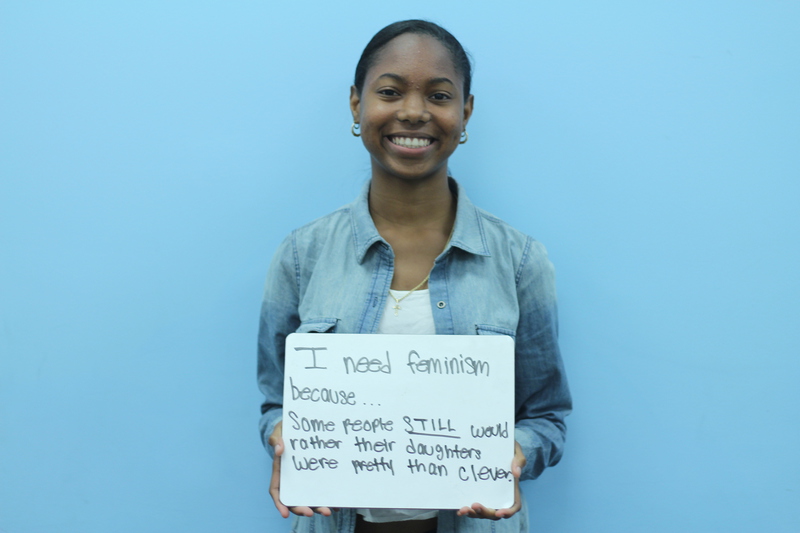 I need feminism
because...
Some people STILL would
rather their daughters
were pretty than clever.